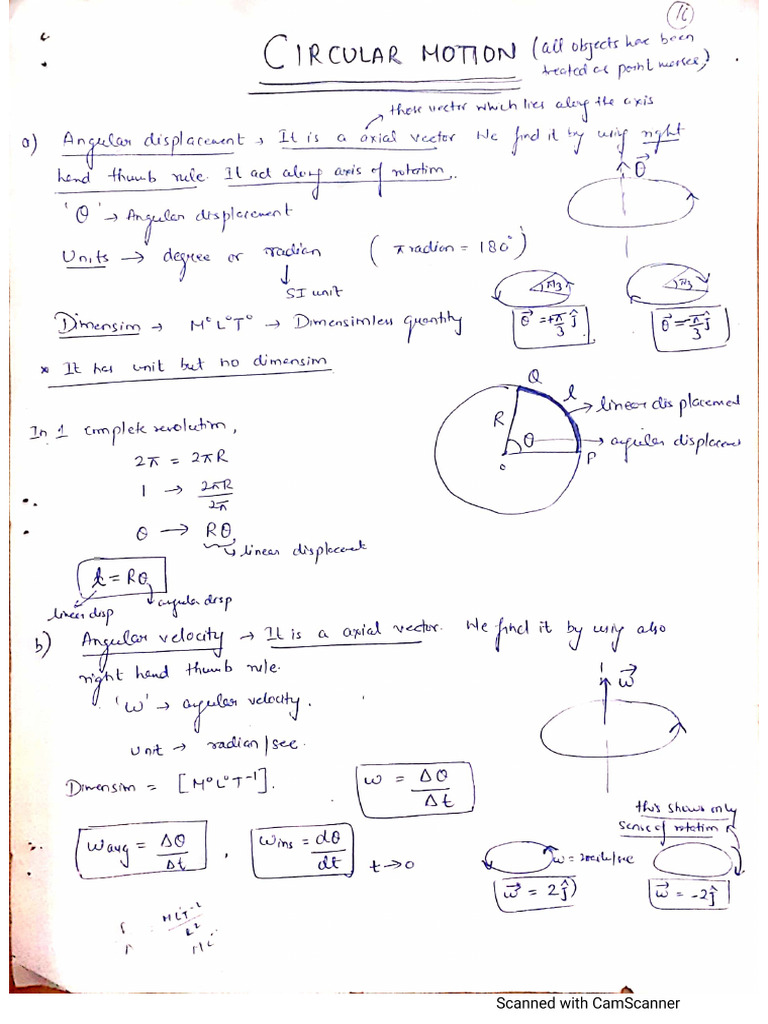 16
CIRCULAR MOTION (all objects have been
treated as point masses)
those vector which lies along the axis
a) Angular displacement → It is a axial vector We find it by using right
hand thumb rule. It act along axis of rotation.
θ⃗
'θ' → Angular displacement
Units → degree or radian (π radian = 180°)
SI unit
π/3 π/3
Dimension → M⁰L⁰T⁰ → Dimensionless quantity
θ⃗ = +π/3 ĵ θ⃗ = -π/3 ĵ
* It has unit but no dimension
Q
l → linear displacement
R θ → angular displacement
O P
In 1 complete revolution,
2π = 2πR
1 → 2πR/2π
θ → Rθ
linear displacement
l = Rθ
linear disp angular disp
b) Angular velocity → It is a axial vector. We find it by using also
right hand thumb rule.
ω⃗
'ω' → angular velocity.
unit → radian/sec.
Dimension = [M⁰L⁰T⁻¹].
ω = Δθ/Δt
this shows only
sense of rotation
ωavg = Δθ/Δt , ωins = dθ/dt t→0
ω = 2rad/sec
ω⃗ = 2ĵ) ω⃗ = -2ĵ
Scanned with CamScanner